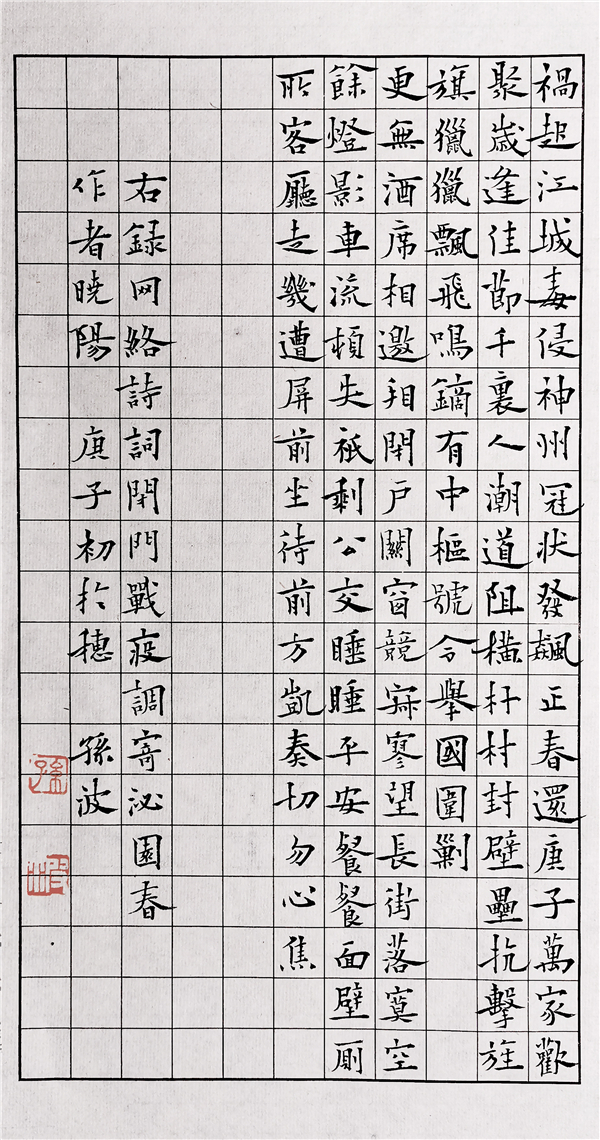 禍起江城毒侵神州冠状發飆正春還庚子萬家歡
聚歲逢佳節千裏人潮道阻橫杆村封壁壘抗擊旌
旗獵獵飄飛鳴鏑有中樞號令舉國圍剿
更無酒席相邀相閉戶關窗競寂寥望長街落寞空
餘燈影車流頓失祇剩公交睡睡平安餐餐面壁厠
所客廳走幾遭屏前坐待前方凱奏切勿心焦
右録网絡詩詞閉門戰疫調寄泌園春
作者曉陽 庚子初於穗 孫波